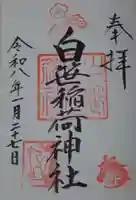 奉拝
白笹稲荷神社
令和八年一月二十七日